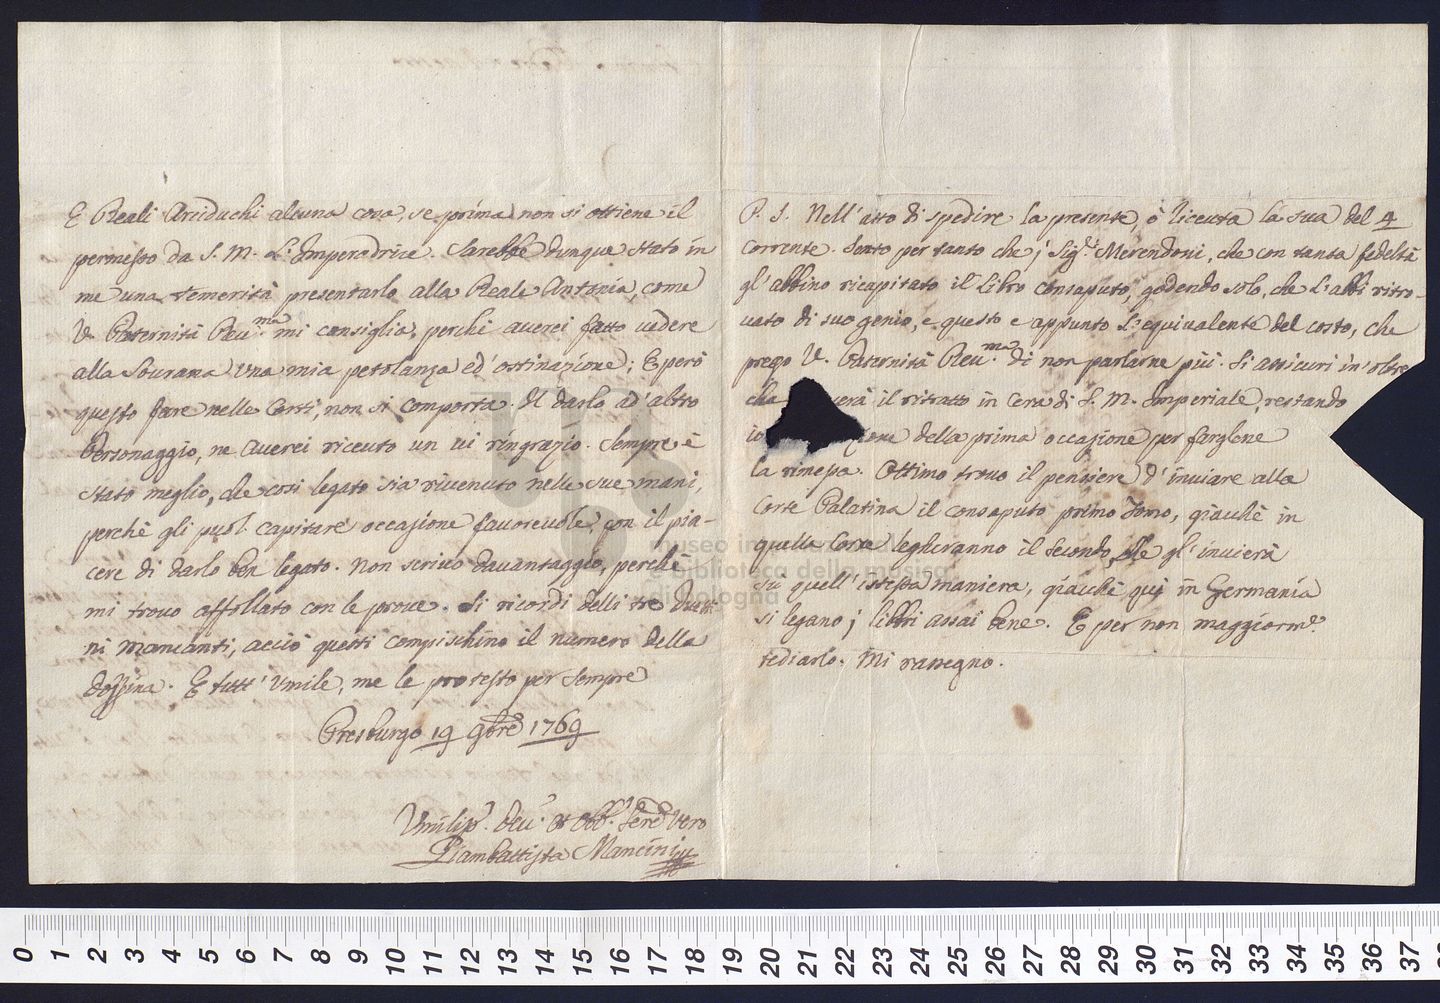 E Reali Arciduchi alcuna cosa, se prima non si ottiene il
permesso da S. M. L'Imperadrice. Sarebbe dunque stato in
me una temerità presentarlo alla Reale Antonia, come
V. Paternità Reu.ma mi consiglia, perchi averei fatto vedere
alla Sovrana una mia petolanza ed' ostinazione; E però
questo fare nelle Corti, non si comporta. Il darlo ad' altro
Personaggio, ne averei riceuto un vi ringrazio. Sempre è
stato meglio, che cosi legato sia rivenuto nelle sue mani,
perchè gli puol capitare occasione favorevole, con il pia-
cere di darlo ben legato. Non scrivo davantaggio, perchè
mi trovo affollato con le prove. Si ricordi delli tre Duetti-
ni mancanti, acciò questi compischino il numero della
dozzina. E tutt' umile, me le protesto per sempre
Presburgo 19 9bre 1769
Umiliss.° deu.° et obb.° Sere Vero
Giambattista Mancini
P. S. Nell' atto di spedire la presente, ò riceuta la sua del 4
corrente. Sento per tanto che i Sig.ri Merendoni, che con tanta fedeltà
gl' abbino ricapitato il libro consaputo, godendo solo, che l'abbi ritro-
vato di suo genio, e questo e appunto l'equivalente del costo, che
prego V. Paternità Reu.ma di non parlarne più. Si assicuri in' oltre
che verà il ritratto in cera di S. M. Imperiale, restando
io della prima occasione per farglene
la rimessa. Ottimo trovo il pensiere d' inviare alla
Corte Palatina il consaputo primo Tomo, giachè in
quella Corte legheranno il secondo, che gl' invierà
su quell' istessa maniera, giachè qui in Germania
si legano i libbri assai bene. E per non maggiorm.e
tediarlo. Mi rassegno.
museo internazionale
e biblioteca della musica
di bologna
0 1 2 3 4 5 6 7 8 9 10 11 12 13 14 15 16 17 18 19 20 21 22 23 24 25 26 27 28 29 30 31 32 33 34 35 36 37